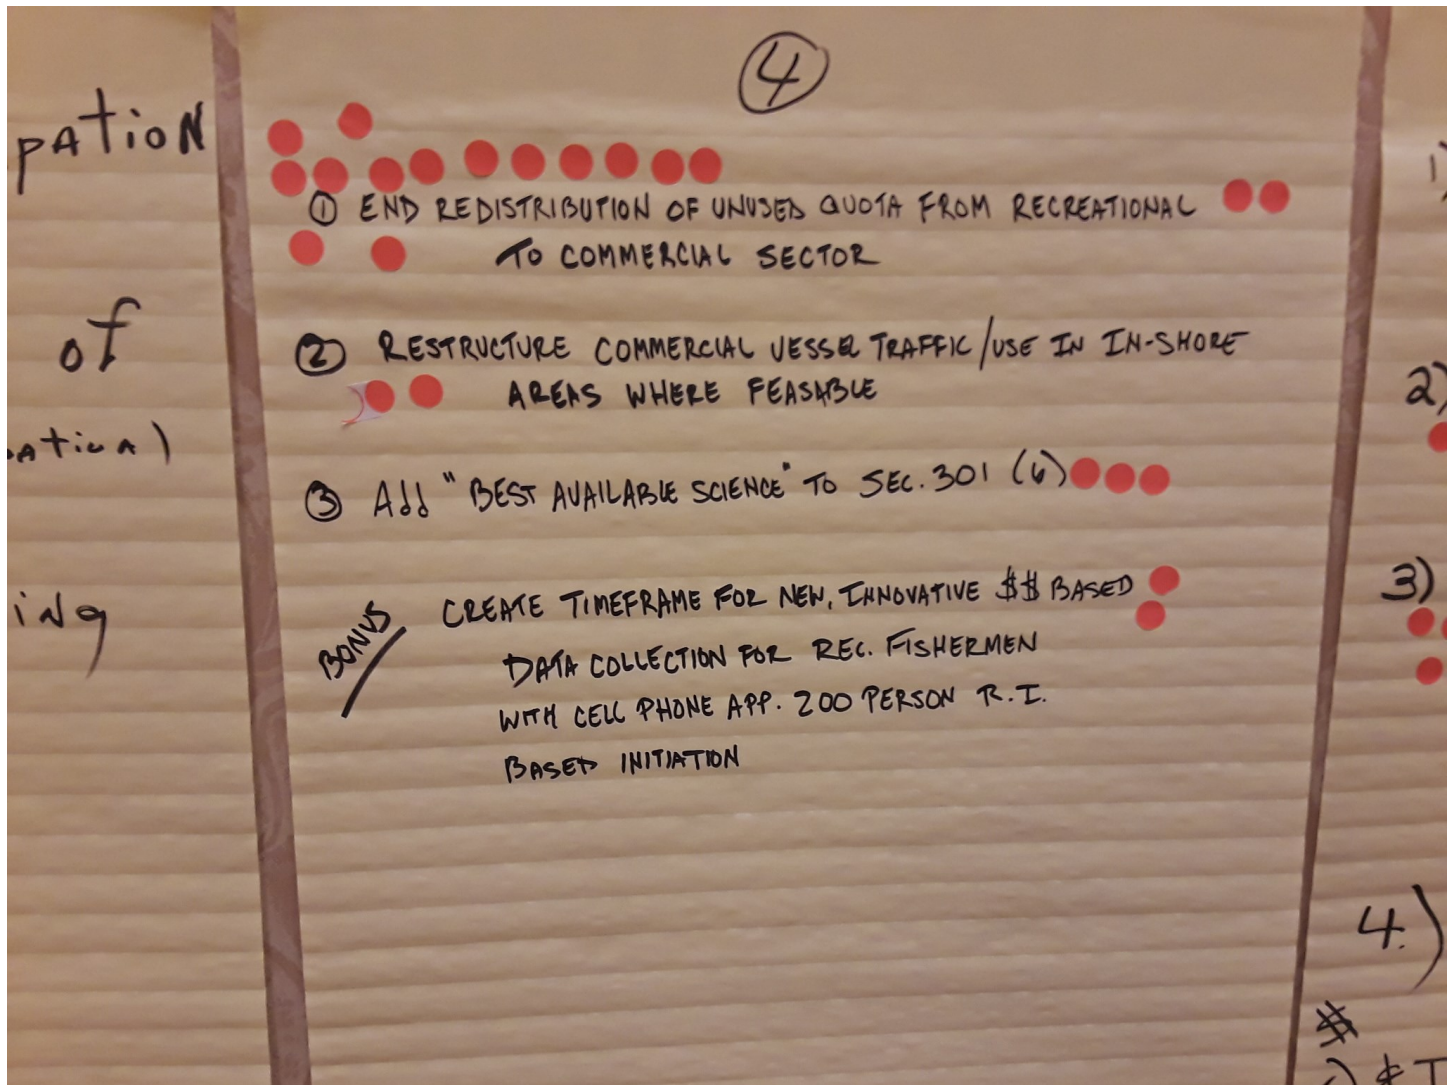 4
1 END REDISTRIBUTION OF UNUSED QUOTA FROM RECREATIONAL
TO COMMERCIAL SECTOR
2 RESTRUCTURE COMMERCIAL VESSEL TRAFFIC/USE IN IN-SHORE
AREAS WHERE FEASABLE
3 Add "BEST AVAILABLE SCIENCE" TO SEC. 301 (6)
BONUS
CREATE TIMEFRAME FOR NEW, INNOVATIVE $$ BASED
DATA COLLECTION FOR REC. FISHERMEN
WITH CELL PHONE APP. 200 PERSON R.I.
BASED INITIATION
pation
of
ation)
ing
1)
2)
3)
4.)
$